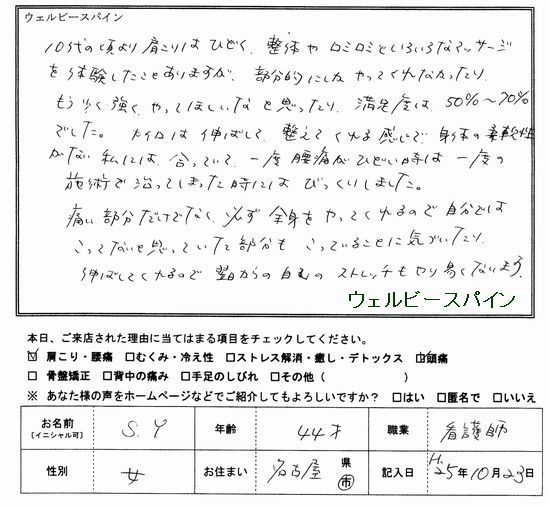 ウェルビースパイン
10代の頃より肩こりはひどく、整体やロミロミといろいろなマッサージ
を体験したことありますが、部分的にしかやってくれなかったり、
もう少し強くやってほしいなと思ったり、満足度は50%〜70%
でした。カイロは伸ばして、整えてくれる感じで、身体の柔軟性
がない私には、合っていて、一度腰痛がひどい時は一度の
施術で治ってしまった時にはびっくりしました。
痛い部分だけでなく、必ず全身をやってくれるので自分では
こってないと思っていた部分もこっていることに気づいたり、
伸ばしてくれるので翌日からの自宅のストレッチもやり易くなります。
ウェルビースパイン
本日、ご来店された理由に当てはまる項目をチェックしてください。
☑ 肩こり・腰痛 □むくみ・冷え性 □ストレス解消・癒し・デトックス ☑頭痛
□ 骨盤矯正 □背中の痛み □手足のしびれ □その他（ ）
※ あなた様の声をホームページなどでご紹介してもよろしいですか？ □はい □匿名で □いいえ
お名前 [イニシャル可] S.Y 年齢 44才 職業 看護師
性別 女 お住まい 名古屋 県 市 記入日 H.25年10月23日